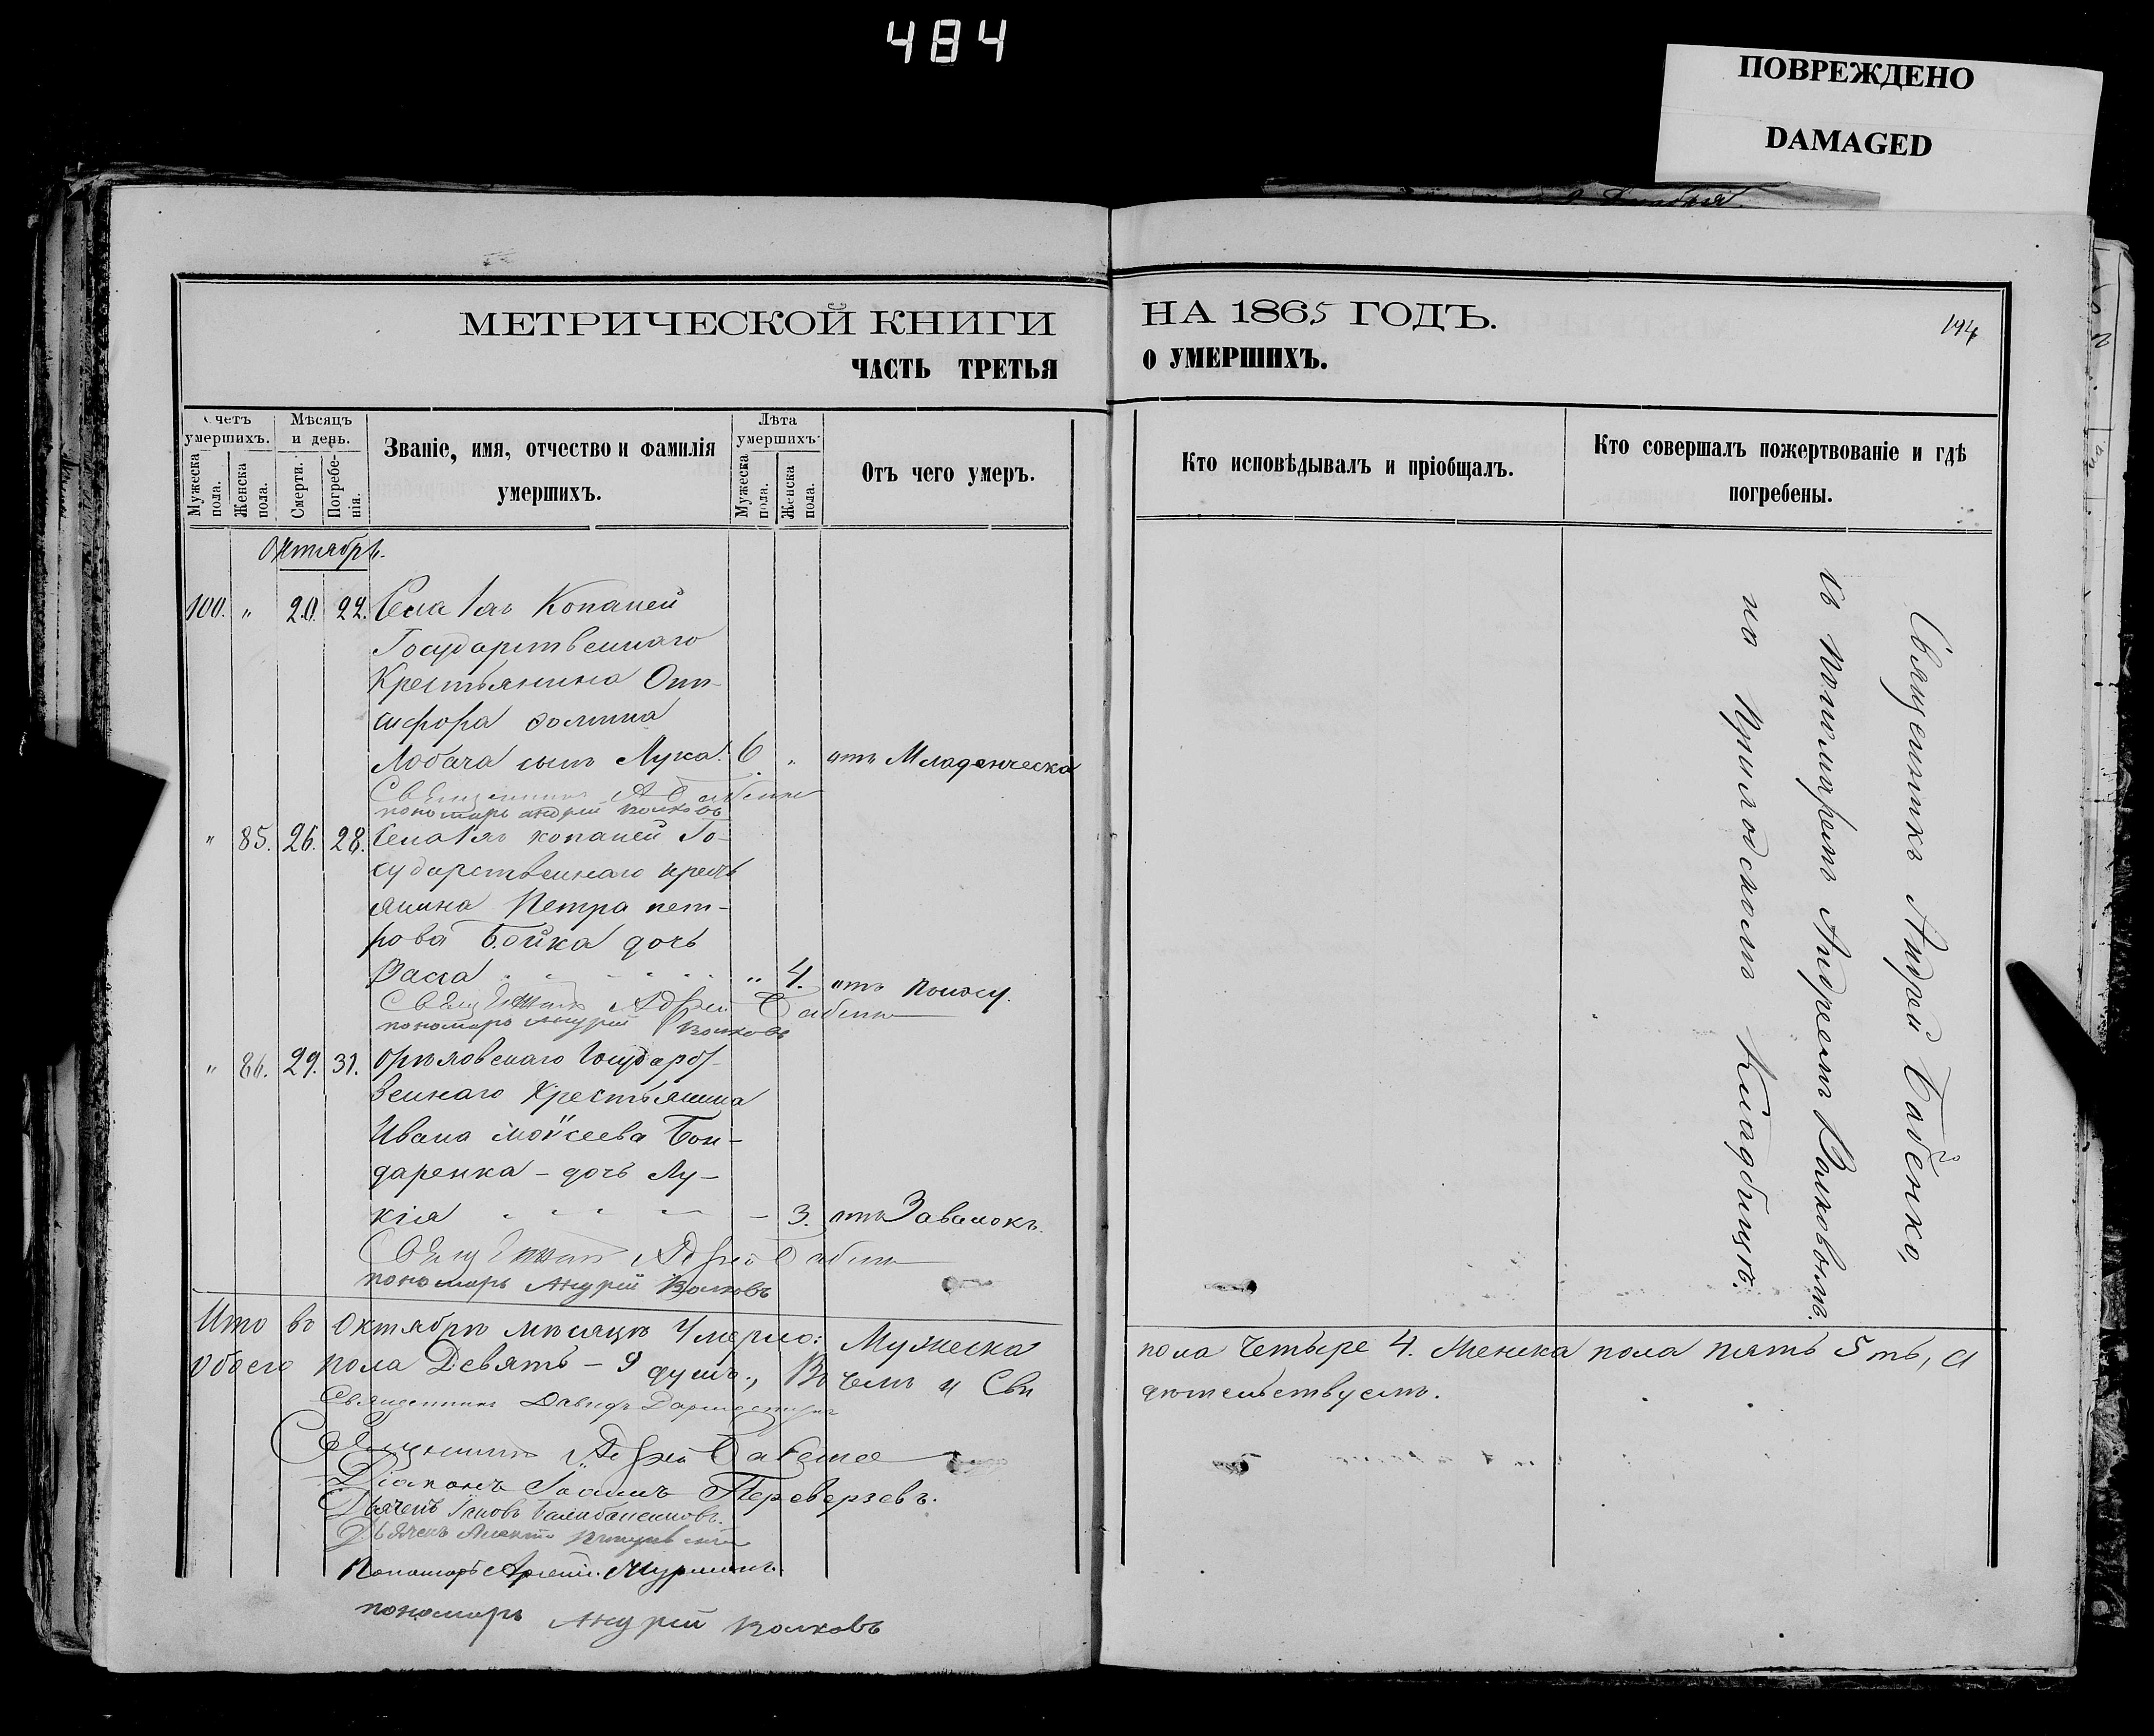 484
ПОВРЕЖДЕНО
DAMAGED
МЕТРИЧЕСКОЙ КНИГИ НА 1865 ГОДЪ.
194
ЧАСТЬ ТРЕТЬЯ О УМЕРШИХЪ.
Счетъ умершихъ.
Мужеска пола.
Женска пола.
Мѣсяцъ и день.
Смерти.
Погребенія.
Званіе, имя, отчество и фамилія
умершихъ.
Лѣта умершихъ.
Мужеска пола.
Женска пола.
Отъ чего умеръ.
Кто исповѣдывалъ и пріобщалъ.
Кто совершалъ пожертвованіе и гдѣ
погребены.
Октябрь.
100. " 20. 22. Села Копаней
Государственнаго
Крестьянина Они-
сифора
Лобача сынъ Лука. 6. " отъ Младенческа
Священникъ
пономарь Андрей Волковъ
" 85. 26. 28. Села копаней Го-
сударственнаго крест
янина Петра пет-
рова Бойка дочь
Васса " 4. отъ поносу.
Священникъ Андрей Бабенко
пономарь Андрей Волковъ
" 86. 29. 31. Орѣховскаго Государст
веннаго Крестьянина
Ивана Моѵсеева Бон-
даренка - дочь Лу-
кія - 3. отъ Завалокъ.
Священникъ Андрей Бабенко
пономарь Андрей Волковъ
Священникъ Андрей Бабенко,
съ Пономаремъ Андреемъ Волковымъ.
на Приходскомъ Кладбищѣ.
Итого въ Октябрѣ мѣсяцѣ Умерло: Мужеска пола Четыре 4. Женска пола пять 5ть, а
обоего пола Девять - 9 душъ., Въ чемъ и Сви дѣтельствуемъ.
Священникъ Давидъ
Священникъ Андрей Бабенко
Діаконъ Іоаннъ Переверзевъ.
Дьячекъ
Дьячекъ
Пономарь
пономарь Андрей Волковъ